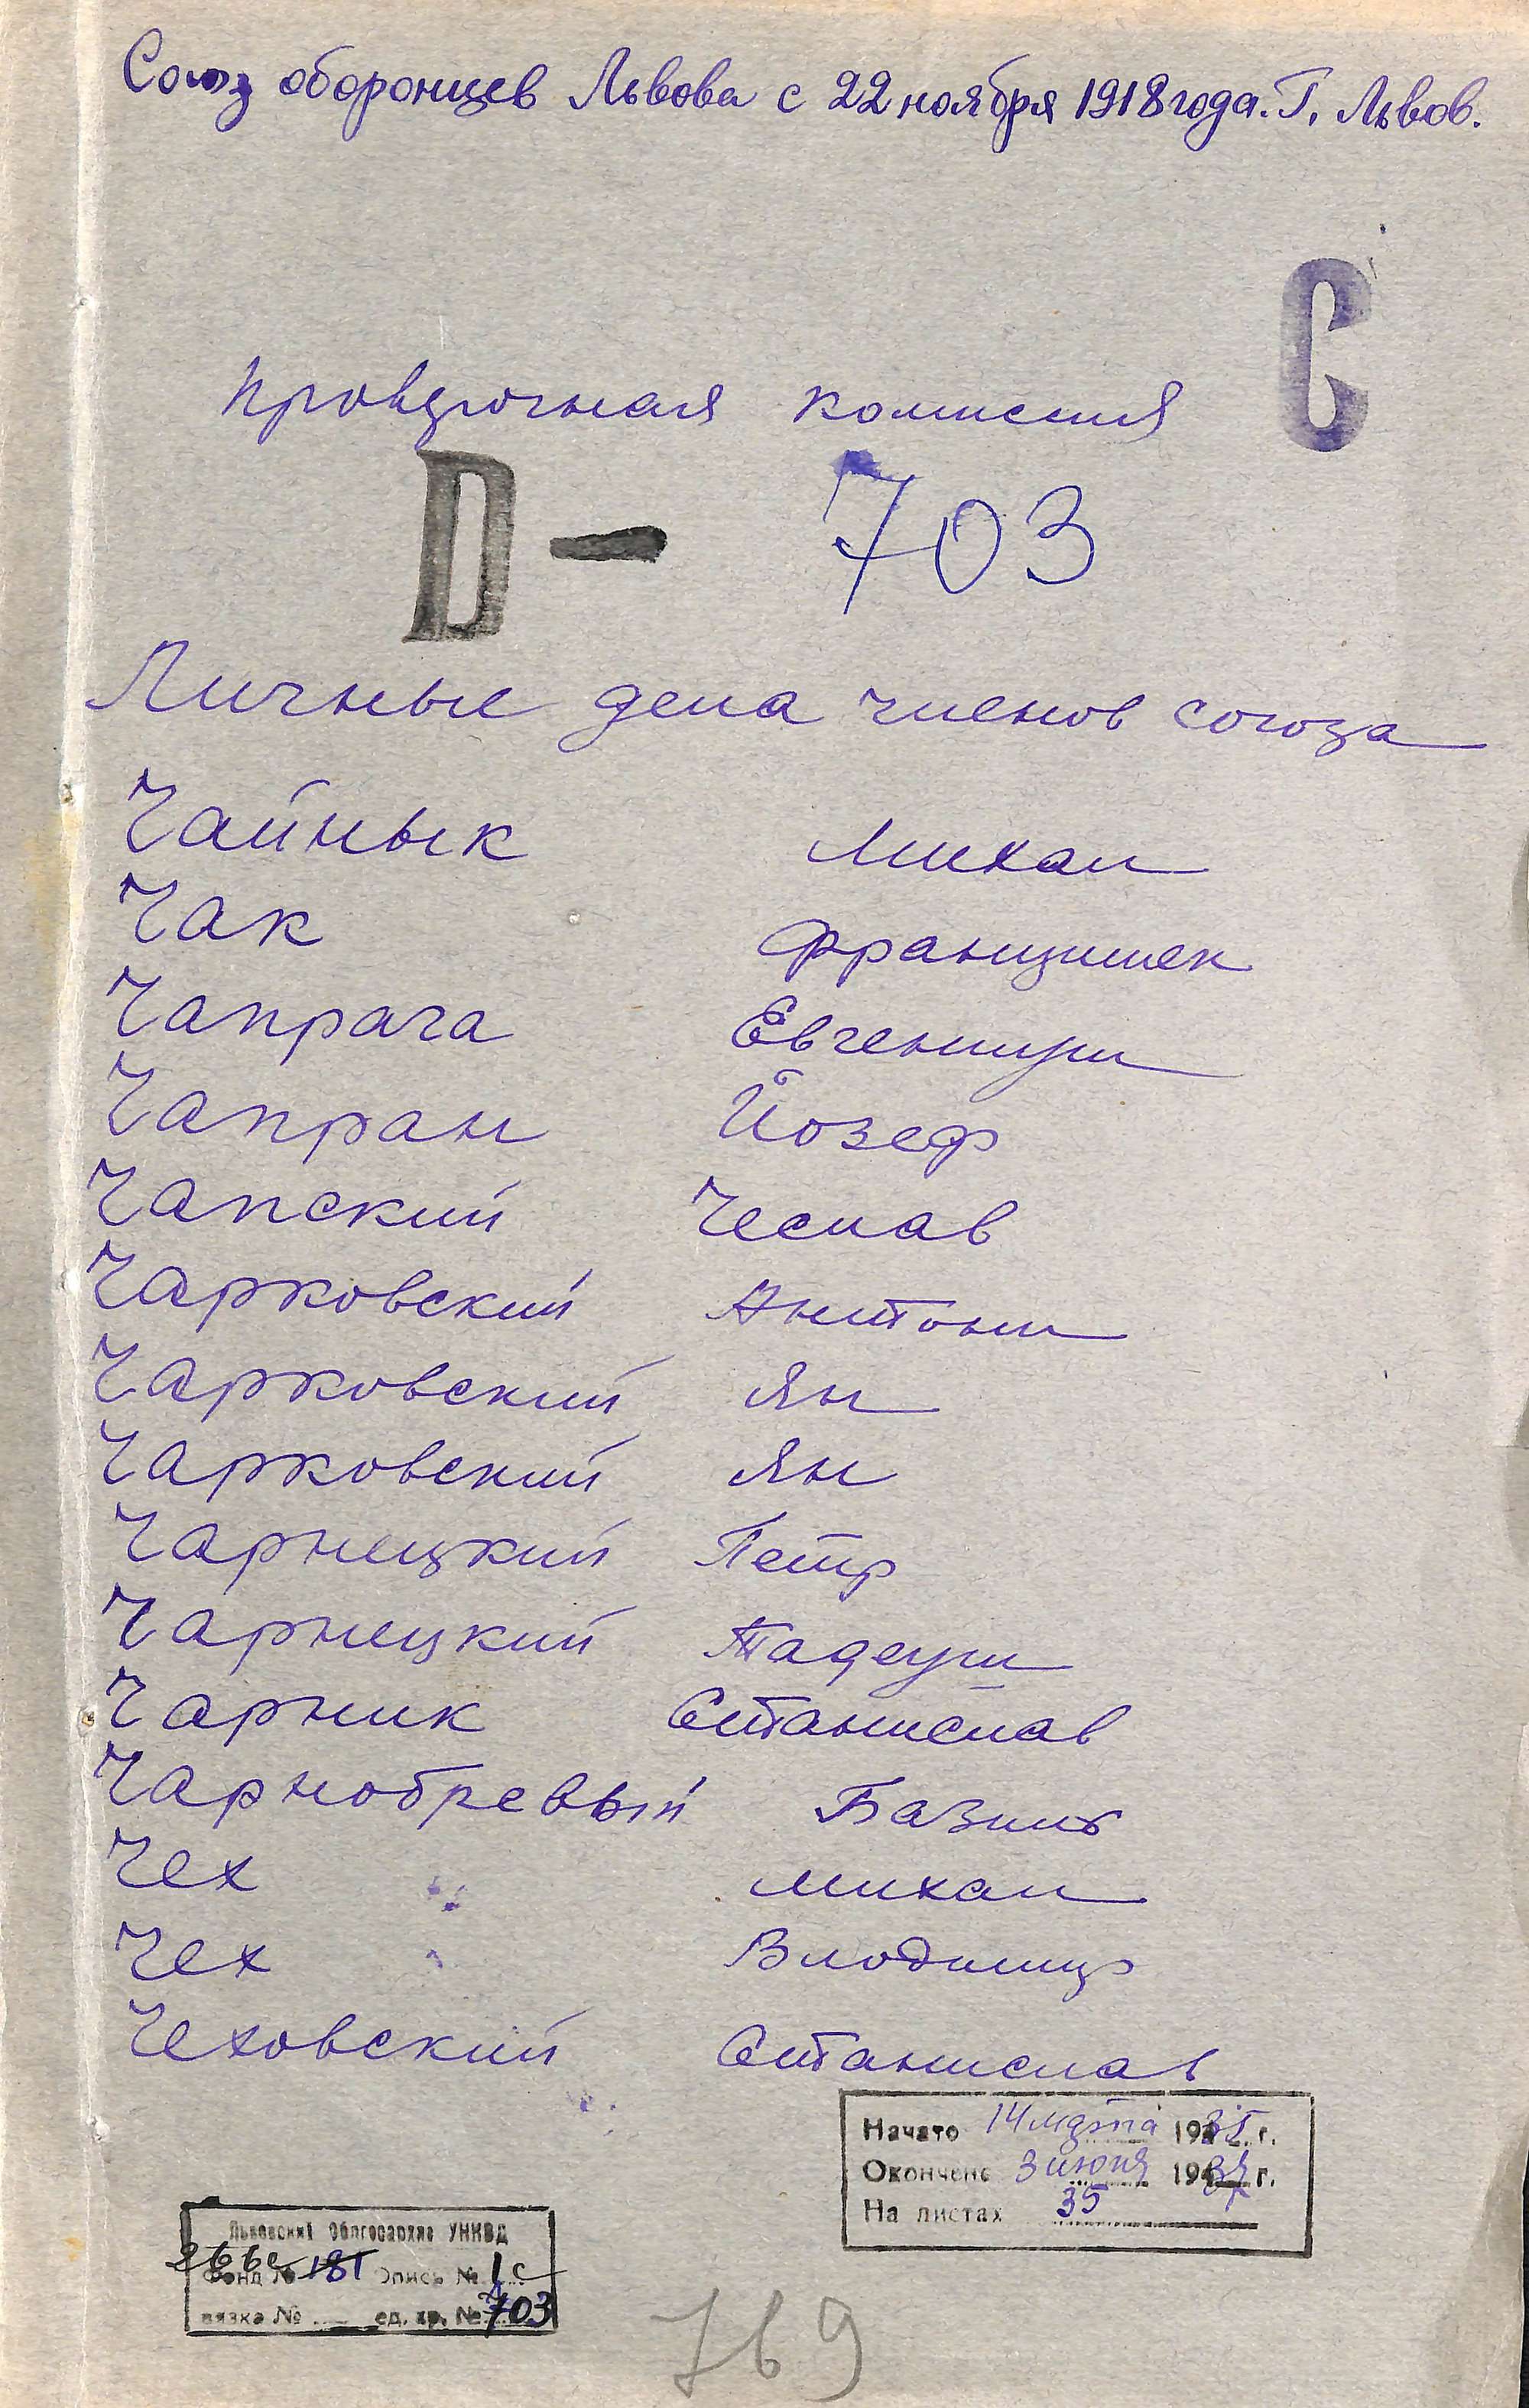 Союз оборонцев Львова с 22 ноября 1918 года. Г. Львов.
С
Проверочная комиссия
D — 703
Личные дела членов союза
Чайнык Михал
Чак Францишек
Чапрага Евгениуш
Чапран Йозеф
Чапский Чеслав
Чарковский Антони
Чарковский Ян
Чарковский Ян
Чарнецкий Петр
Чарнецкий Тадеуш
Чарник Станислав
Чарнобревый Базиль
Чех Михал
Чех Влодимир
Чеховский Станислав
Начато 14 марта 193 г.
Окончено 3 июня 193 г.
На листах 35
Львовский Облгосархив УНКВД
Фонд № 181 Опись № 1 с
вязка № ед. хр. № 703
769